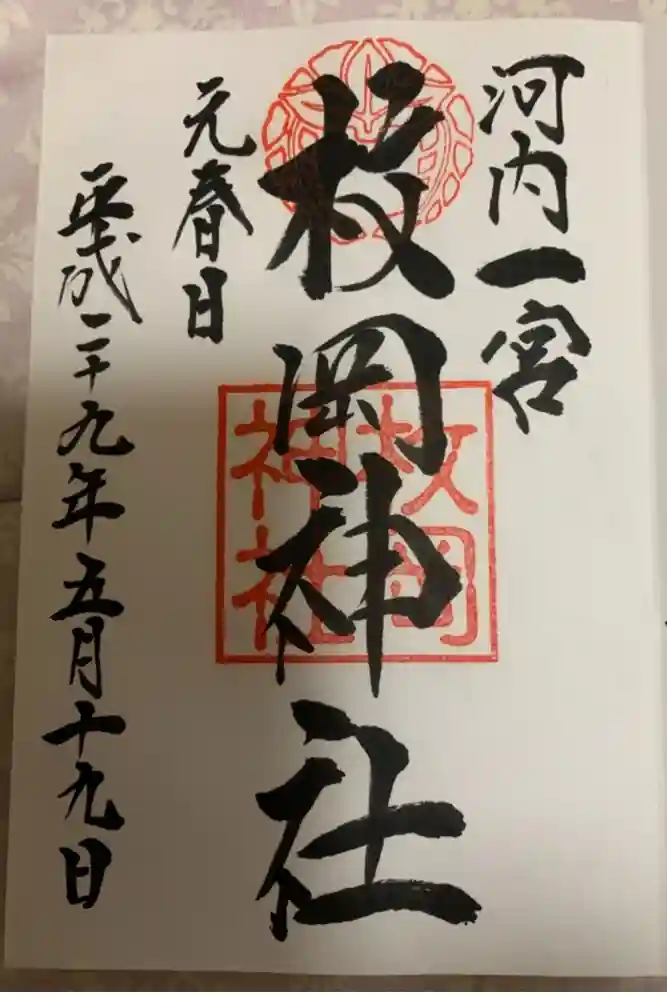 河内一宮
枚岡神社
枚岡
神社
元春日
平成二十九年五月十九日